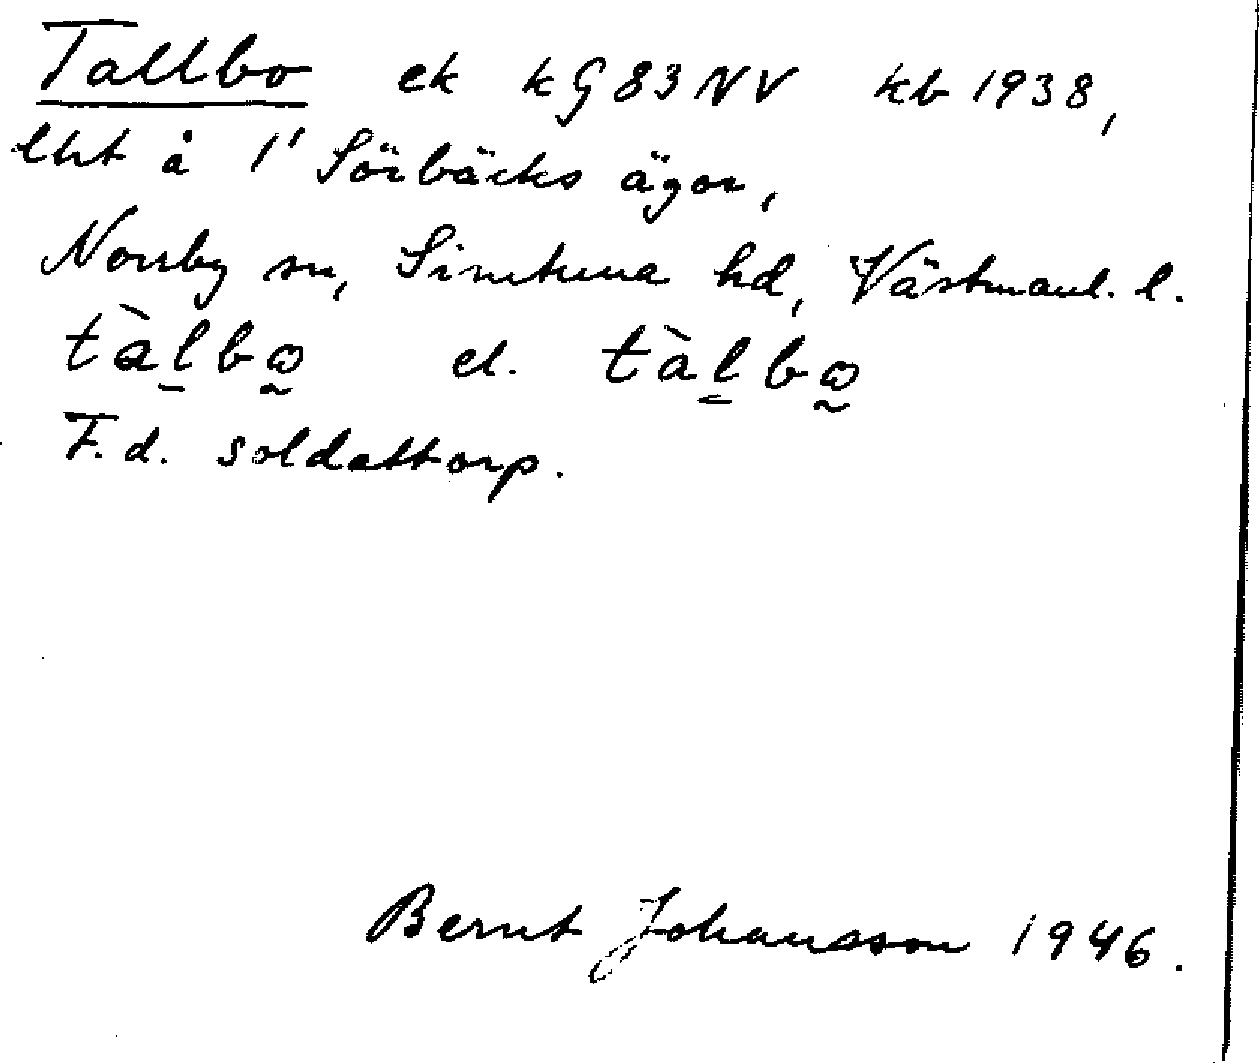 Tallbo ek kG 83 NV kb 1938,
lht å 1' Sörbäcks ägor,
Norrby sn, Simtuna hd, Västmanl. l.
tàl̠bω̰ el. tàl̳bω̰
F.d. soldattorp.
Bernt Johansson 1946.